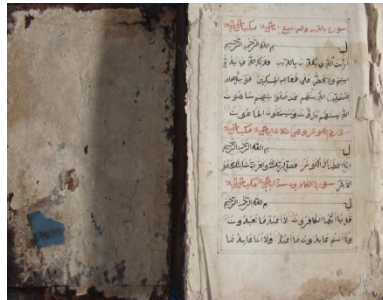 سورة وهي سبع آيات مكية
بسم الله الرحمن الرحيم
أرأيت الذي يكذب بالدين فذلك الذي يدع
اليتيم ولا يحض على طعام المسكين فويل
للمصلين الذين هم عن صلاتهم ساهون
الذين هم يراءون ويمنعون الماعون
سورة الكوثر وهي ثلاث آيات مكية
بسم الله الرحمن الرحيم
إنا أعطيناك الكوثر فصل لربك وانحر إن شانئك هو
الأبتر سورة الكافرون ست آيات مكية
بسم الله الرحمن الرحيم
قل يا أيها الكافرون لا أعبد ما تعبدون
ولا أنتم عابدون ما أعبد ولا أنا عابد ما